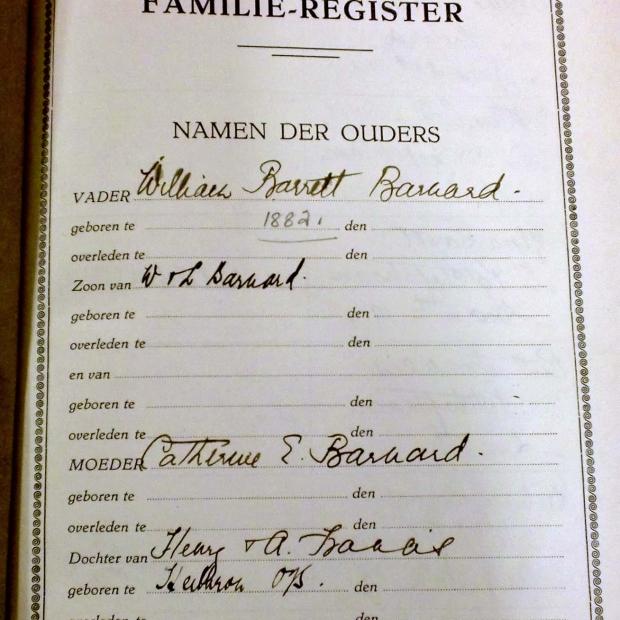 FAMILIE-REGISTER
NAMEN DER OUDERS
VADER William Barrett Barnard.
geboren te 1882. den
overleden te den
Zoon van W & L Barnard.
geboren te den
overleden te den
en van
geboren te den
overleden te den
MOEDER Catherine E. Barnard.
geboren te den
overleden te den
Dochter van Henry & A. Francis
geboren te Heilbron O/S. den
overleden te den